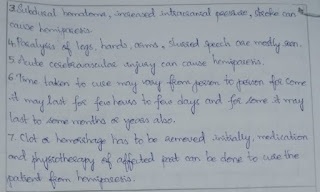 3. Subdural hematoma, increased intracranial pressure, stroke can
cause hemiparesis.
4. Paralysis of legs, hands, arms, slurred speech are mostly seen.
5. Acute cerebrovascular injury can cause hemiparesis.
6. Time taken to cure may vary from person to person for some
it may last for few hours to few days and for some it may
last to some months or years also.
7. Clot or hemorrhage has to be removed initially, medication
and physiotherapy of affected part can be done to cure the
patient from hemiparesis.